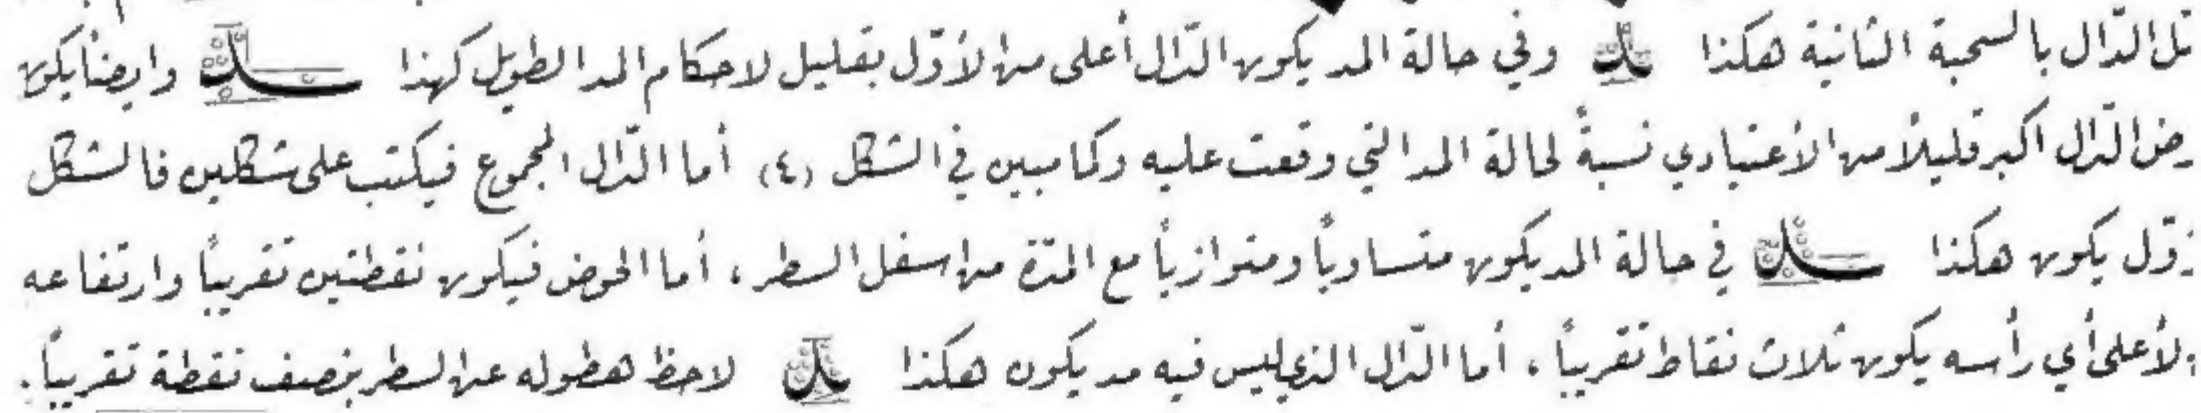 الدّال بالسحبة الثانية هكذا وفي حالة المد يكون الدّال أعلى من الأوّل بقليل لاحكام المد الطويل كهذا وايضاً يكون
الدّال اكبر قليلاً من الأعتيادي نسبةً لحالة المد التي وقعت عليه وكما مبين في الشكل (٤) أما الدّال المجموع فيكتب على شكلين فالشكل
يكون هكذا في حالة المد يكون متساوياً ومتوازياً مع المدّة من اسفل السطر ، أما الحوض فيكون نقطتين تقريباً وارتفاعه
لأعلى أي رأسه يكون ثلاث نقاط تقريباً ، أما الدّال الذي ليس فيه مد يكون هكذا لاحظ هطوله عن السطر بنصف نقطة تقريباً .